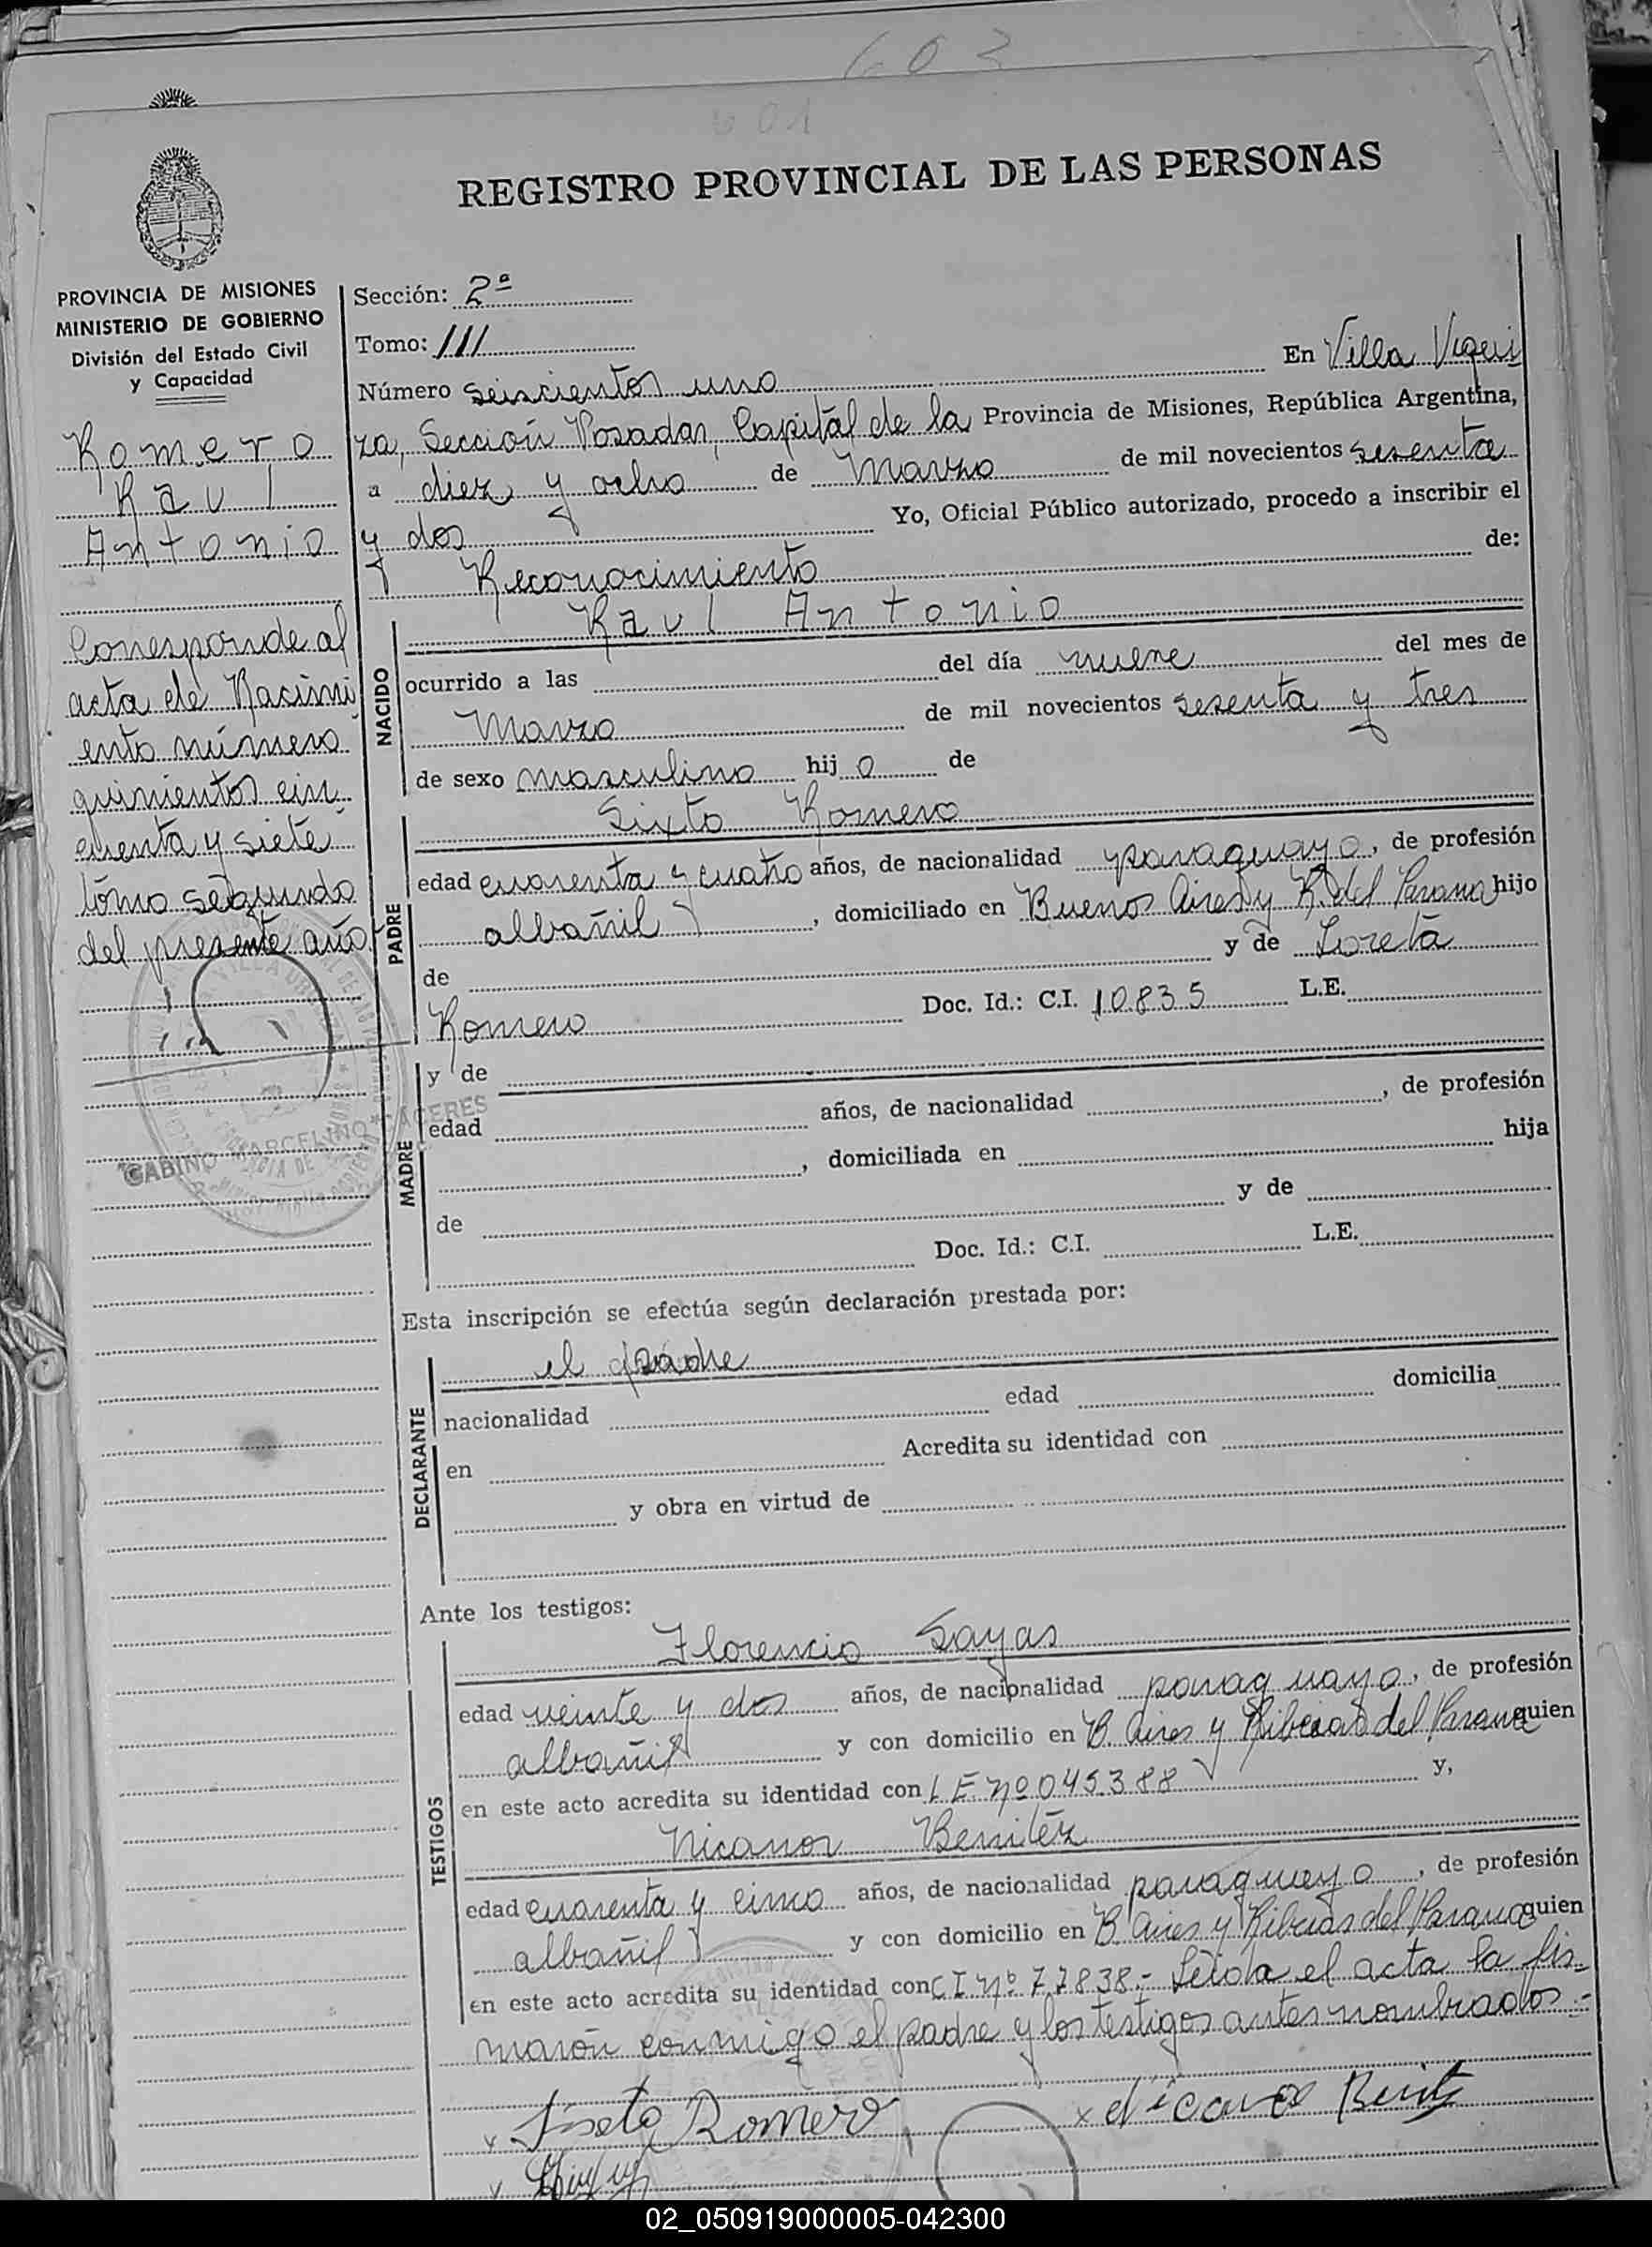 603
601
REGISTRO PROVINCIAL DE LAS PERSONAS
PROVINCIA DE MISIONES
MINISTERIO DE GOBIERNO
División del Estado Civil
y Capacidad
Romero
Raul
Antonio
Corresponde al
acta de Nacimi
ento número
quinientos cin
cuenta y siete
tomo segundo
del presente año
GABINO MARCELINO CACERES
Sección: 2ª
Tomo: III
Número seiscientos uno En Villa Vigeri
za, Sección Posadas, Capital de la Provincia de Misiones, República Argentina,
a diez y ocho de Marzo de mil novecientos sesenta
y dos Yo, Oficial Público autorizado, procedo a inscribir el
Reconocimiento de:
NACIDO
Raul Antonio
ocurrido a las del día nueve del mes de
Marzo de mil novecientos sesenta y tres
de sexo masculino hij o de
PADRE
Sixto Romero
edad cuarenta y cuatro años, de nacionalidad paraguayo, de profesión
albañil, domiciliado en Buenos Aires y R. del Parana hijo
de y de Loreta
Romero Doc. Id.: C.I. 10835 L.E.
MADRE
y de
edad años, de nacionalidad , de profesión
, domiciliada en hija
de y de
Doc. Id.: C.I. L.E.
Esta inscripción se efectúa según declaración prestada por:
DECLARANTE
el padre
nacionalidad edad domicilia
en Acredita su identidad con
y obra en virtud de
Ante los testigos:
TESTIGOS
Florencio Sayas
edad veinte y dos años, de nacionalidad paraguayo, de profesión
albañil y con domicilio en B. Aires y Riberas del Parana quien
en este acto acredita su identidad con L E nº 045.388 y,
Nicanor Benitez
edad cuarenta y cinco años, de nacionalidad paraguayo, de profesión
albañil y con domicilio en B. Aires y Riberas del Parana quien
en este acto acredita su identidad con C I nº 77838.- Leida el acta la fir-
maron conmigo el padre y los testigos antes nombrados.-
x Sixto Romero
x
02_050919000005-042300